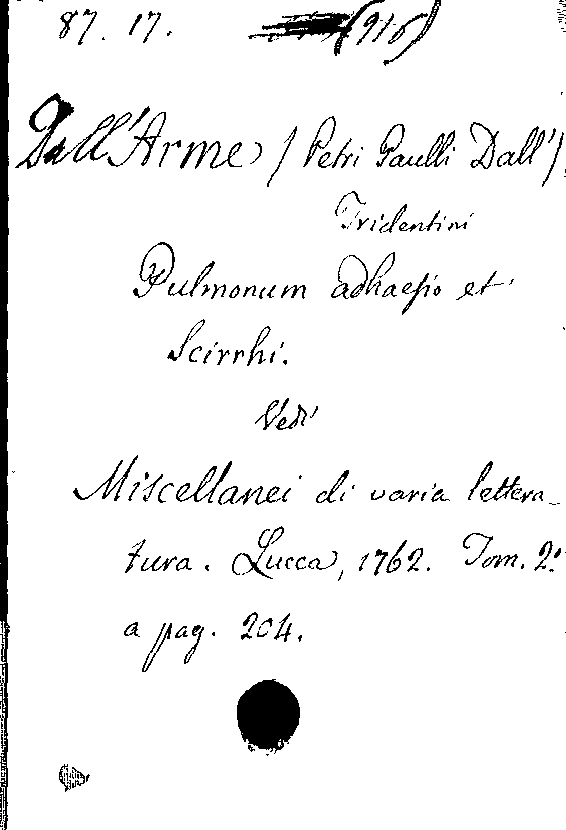 87. 17. (916)
Dall'Arme / Petri Paulli Dall' /,
Tridentini
Pulmonum adhaesio et
Scirrhi.
Vedi
Miscellanei di varia lettera-
tura. Lucca, 1762. Tom. 2.º
a pag. 204.